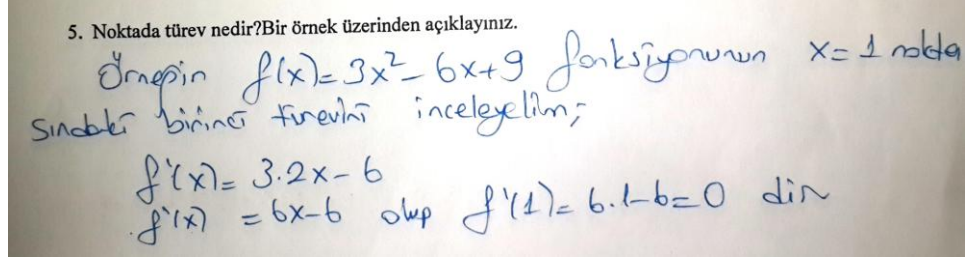 5. Noktada türev nedir?Bir örnek üzerinden açıklayınız.
Örneğin f(x)=3x²-6x+9 fonksiyonunun x=1 nokta
sındaki birinci türevini inceleyelim;
f'(x)= 3.2x-6
f'(x) = 6x-6 olup f'(1)=6.1-6=0 dır